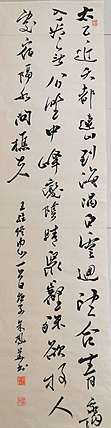 太乙近天都連山到海隅白雲迴望合青靄
入看無分野中峰變陰晴衆壑殊欲投人
處宿隔水問樵夫
王維終南山 書